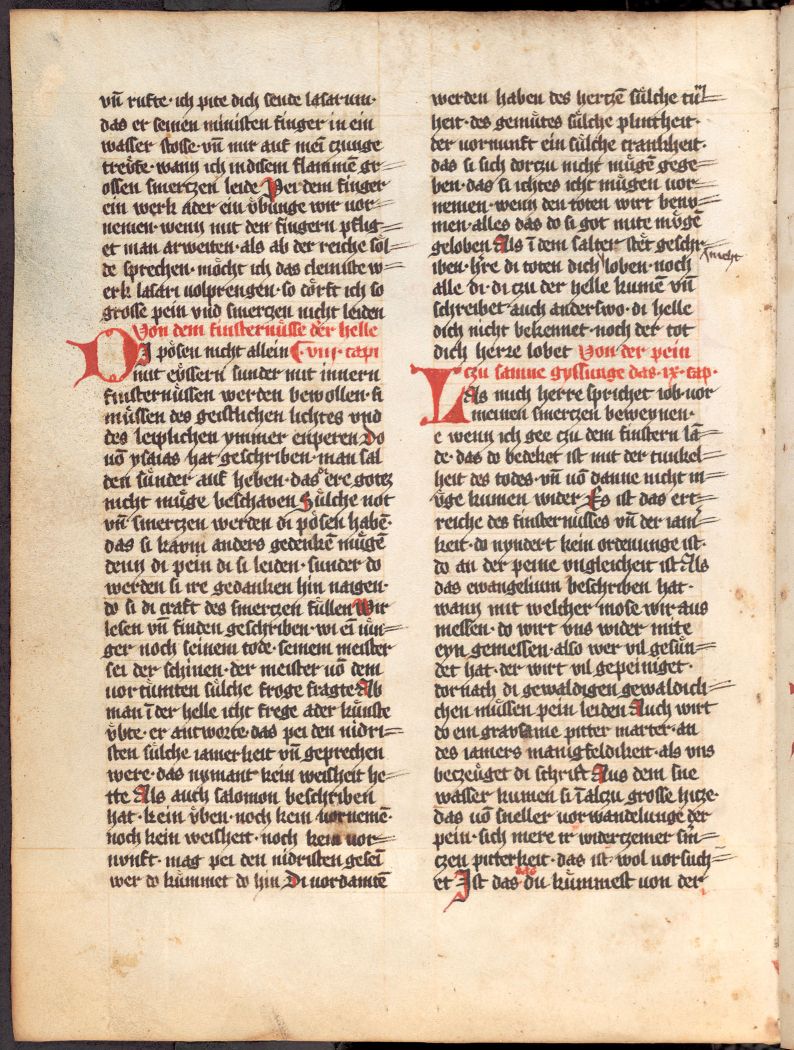 vn̄ rufte · ich pite dich sende lasarum ·
das er seinen ministen finger in ein
wasser stosse · vn̄ mir auf mein̄ czunge
treyfe · wann ich in disem flammen gr=
ossen smerczen leide Pei dem finger
ein werk ader ein v̈bunge wir vor=
nemen · wenn mit den fingern pflig=
et man arweiten · als ab der reiche sol=
de sprechen · möcht ich das cleiniste w=
erk lasari volprengen · so törft ich so
grosse pein vnd smerczen nicht leiden
Von dem finsternüsse der helle
DI pösen nicht allein · viii · capi
mit eyssern sunder mit innern
finsternüssen werden bewollen · si
müssen des geistlichen lichtes vnd
des leiplichen ymmer enperen Do
vō ysaias hat geschriben · man sal
den sünder auf heben · das er ere gotez
nicht müge beschaven Sülche not
vn̄ smerczen werden di pösen habē ·
das si kavm anders gedenkē mügē
denn di pein di si leiden · sunder do
werden si ire gedanken hin naigen ·
do si di craft des smerczen füllen Wir
lesen vn̄ finden geschriben · wi eī iün=
ger noch seinem tode · seinem meister
sei der schinen · der meister vō dem
vortümten sülche froge fragte Ab
man ī der helle icht frege ader künste
v̈bte · er antworte · das pei den nidri=
sten sülche iamerkeit vn̄ geprechen
were · das nymant kein weisheit he=
tte Als auch salomon beschriben
hat · kein v̈ben · noch kein vornemē ·
noch kein weisheit · noch kein vor=
nvnft · mag pei den nidristen geseī
wer do kümmet do hin Di vordamtē
werden haben des hertzē sülche tül=
heit · des gemütes sülche plintheit ·
der vornunft ein sülche crankheit ·
das si sich dorczu nicht mügen gege=
ben · das si ichtes icht mügen vor=
nemen · wenn den toten wirt beno=
men · alles das do si got mite mügē
geloben Als ī dem salter stet geschr=
iben · hr̄e di toten dich loben · noch
nicht
alle di · di czu der helle kumē vn̄
schreibet auch anderswo · di helle
dich nicht bekennet · noch der tot
dich herre lobet Von der pein
czu samne gyssunge das · ix · cap ·
LAs mich herre sprichet iob · vor
meinen smerczen beweynen ·
e wenn ich gee czu dem finstern lā=
de · das do bedeket ist mit der tunkel=
heit des todes · vn̄ vō danne nicht m=
v̈ge kumen wider Es ist das ert=
reiche des finsternüsses vn̄ der iam̄=
keit · do nyndert kein ordenunge ist ·
do an der peine vngleicheit ist Als
das ewangelium beschriben hat ·
wann mit welcher mose wir aus
messen · do wirt vns wider mite
eyn gemessen · also wer vil gesün=
det hat · der wirt vil gepeiniget ·
dornach di gewaldigen gewaldicli=
chen müssen pein leiden Auch wirt
do ein gravsame pitter marter · an
des iamers manigfeldikeit · als vns
beczeüget di schrift Aus dem sne
wasser kumen si ī alczu grosse hicze ·
das vō sneller vorwandelunge der
pein · sich mere ir widerczemer smr̄=
czen pitterkeit · das ist wol vorsuch=
et Ist das das du kümmest von der